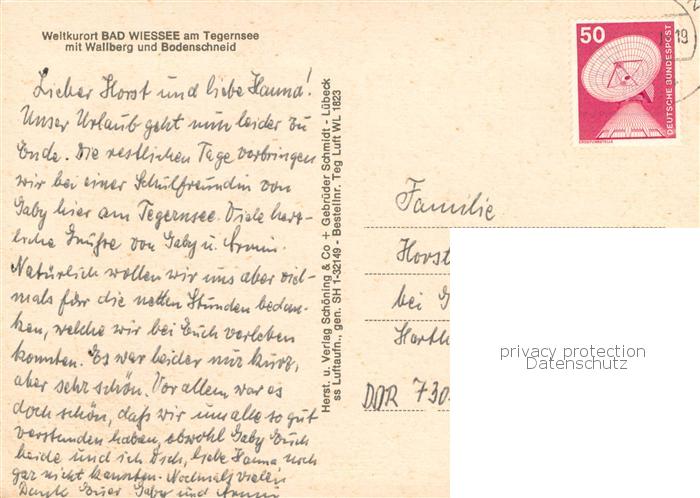 Weltkurort BAD WIESSEE am Tegernsee
mit Wallberg und Bodenschneid
Lieber Horst und liebe Hanna!
Unser Urlaub geht nun leider zu
Ende. Die restlichen Tage verbringen
wir bei einer Schulfreundin von
Gaby hier am Tegernsee. Viele herz-
liche Grüße von Gaby u. Armin.
Natürlich wollen wir uns aber viel-
mals für die netten Stunden bedan-
ken, welche wir bei Euch verleben
konnten. Es war leider nur kurz,
aber sehr schön. Vor allem war es
doch schön, daß wir uns alle so gut
verstanden haben, obwohl Gaby Euch
beide und ich Dich, liebe Hanna noch
gar nicht kannten. Nochmals vielen
Dank Euer Gaby und Armin
Herst. u. Verlag Schöning & Co + Gebrüder Schmidt - Lübeck
ss Luftaufn., gen. SH 1-32149 - Bestellnr. Teg Luft WL 1823
50
DEUTSCHE BUNDESPOST
ERDEFUNKSTELLE
19
Familie
Horst
bei G
Harth
DDR 730
privacy protection
Datenschutz